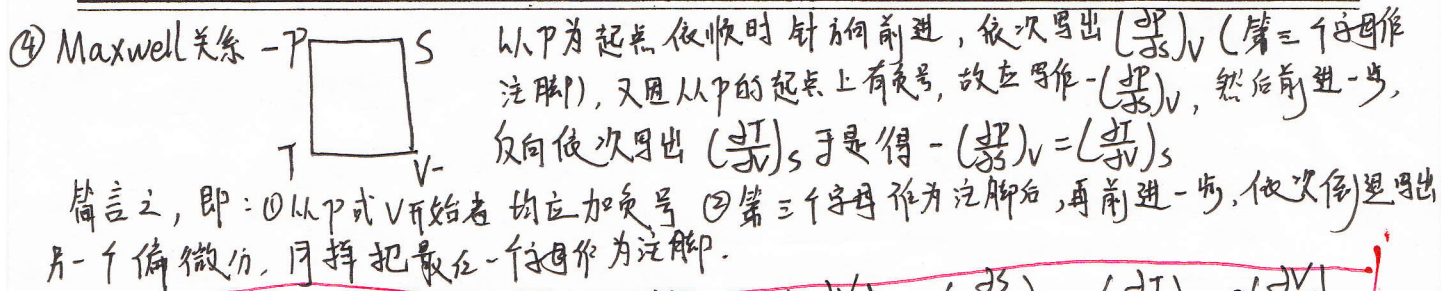 ④ Maxwell关系 -P S 以P为起点依顺时针方向前进,依次写出(∂P/∂S)V (第三个字母作
注脚),又因从P的起点上有负号,故应写作-(∂P/∂S)V,然后前进一步,
T V- 反向依次写出(∂T/∂V)S 于是得-(∂P/∂S)V=(∂T/∂V)S
简言之,即:①以P或V开始者均应加负号 ②第三个字母作为注脚后,再前进一步,依次倒退写出
另一个偏微分,同样把最后一个字母作为注脚.